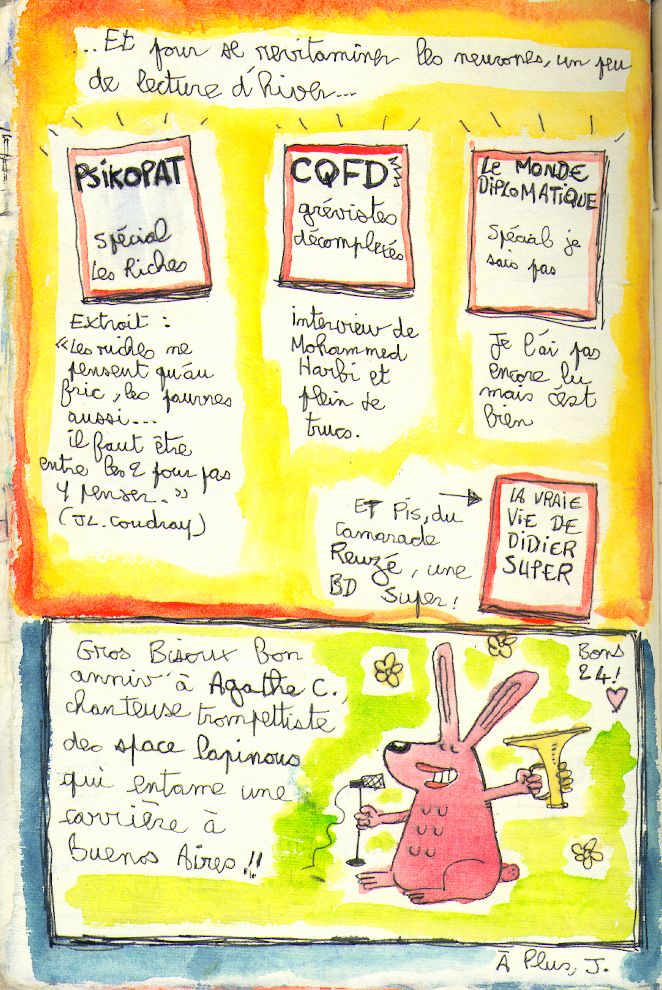 ...Et pour se revitaminer les neurones, un peu
de lecture d'hiver...
PSIKOPAT
Spécial
Les Riches
Extrait :
"Les riches ne
pensent qu'au
fric, les pauvres
aussi...
il faut être
entre les 2 pour pas
y penser.."
(JL. Coudray)
CQFD
grévistes
décomplexés
interview de
Mohammed
Harbi et
plein de
trucs.
Le MONDE
DIPLOMATIQUE
Spécial je
sais pas
Je l'ai pas
encore lu
mais c'est
bien
ET Pis, du
camarade
Reuzé, une
BD Super!
LA VRAIE
VIE DE
DIDIER
SUPER
Gros Bisoux Bon
anniv' à Agathe C.,
chanteuse trompettiste
des space lapinous
qui entame une
carrière à
Buenos Aires!!
Bons
24!
À Plus, J.